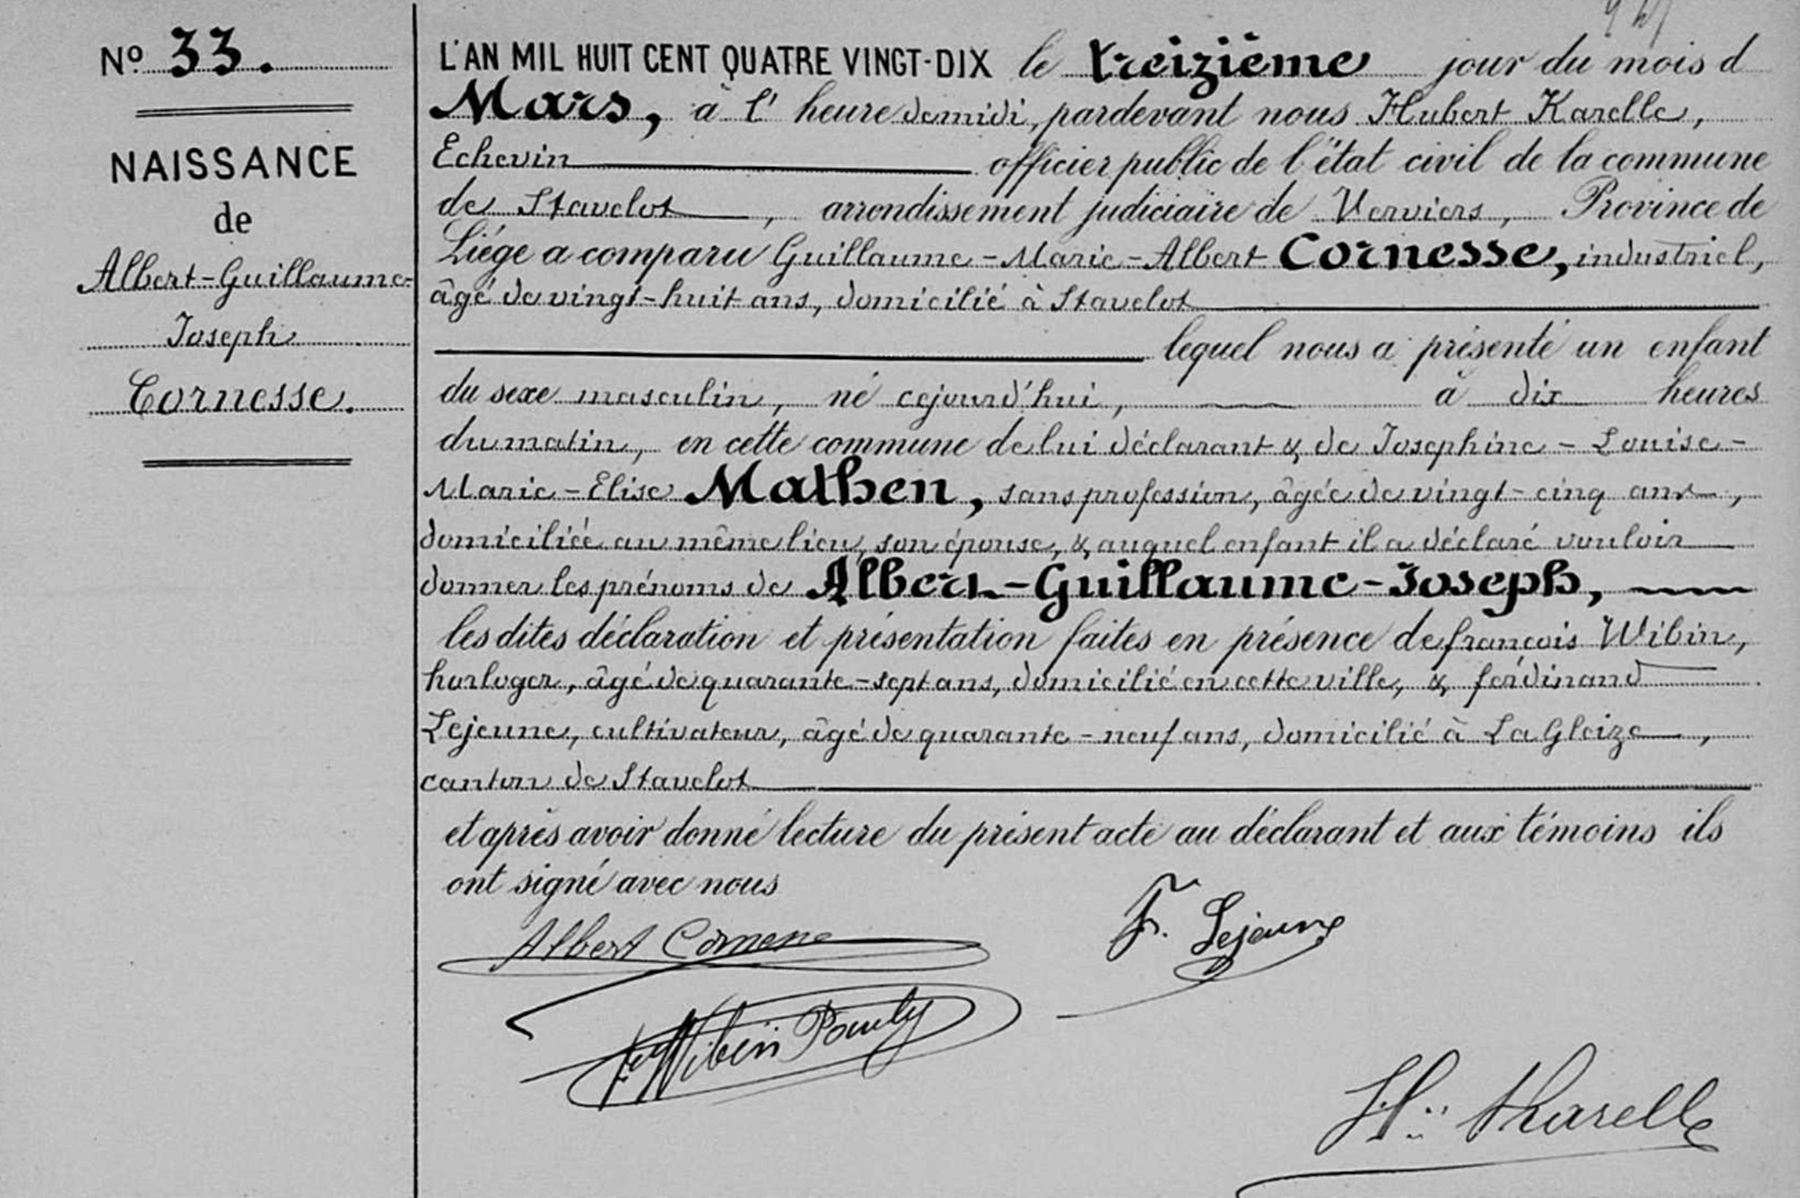 No 33.
NAISSANCE
de
Albert-Guillaume-
Joseph
Cornesse.
L'AN MIL HUIT CENT QUATRE VINGT-DIX le treizième jour du mois d
Mars, à l' heure de midi, pardevant nous Hubert Karelle,
Echevin officier public de l'état civil de la commune
de Stavelot, arrondissement judiciaire de Verviers, Province de
Liége a comparu Guillaume-Marie-Albert Cornesse, industriel,
âgé de vingt-huit ans, domicilié à Stavelot
lequel nous a présenté un enfant
du sexe masculin, né cejourd'hui, à dix heures
du matin, en cette commune de lui déclarant & de Josephine-Louise-
Marie-Elise Mathen, sans profession, âgée de vingt-cinq ans,
domiciliée au même lieu, son épouse, & auquel enfant il a déclaré vouloir
donner les prénoms de Albert-Guillaume-Joseph,
les dites déclaration et présentation faites en présence de françois Wibin,
horloger, âgé de quarante-sept ans, domicilié en cette ville, & ferdinand
Lejeune, cultivateur, âgé de quarante-neuf ans, domicilié à La Gleize,
canton de Stavelot
et après avoir donné lecture du présent acte au déclarant et aux témoins ils
ont signé avec nous
Albert Cornesse
F. Lejeune
Wibin Pauly
H. Karelle